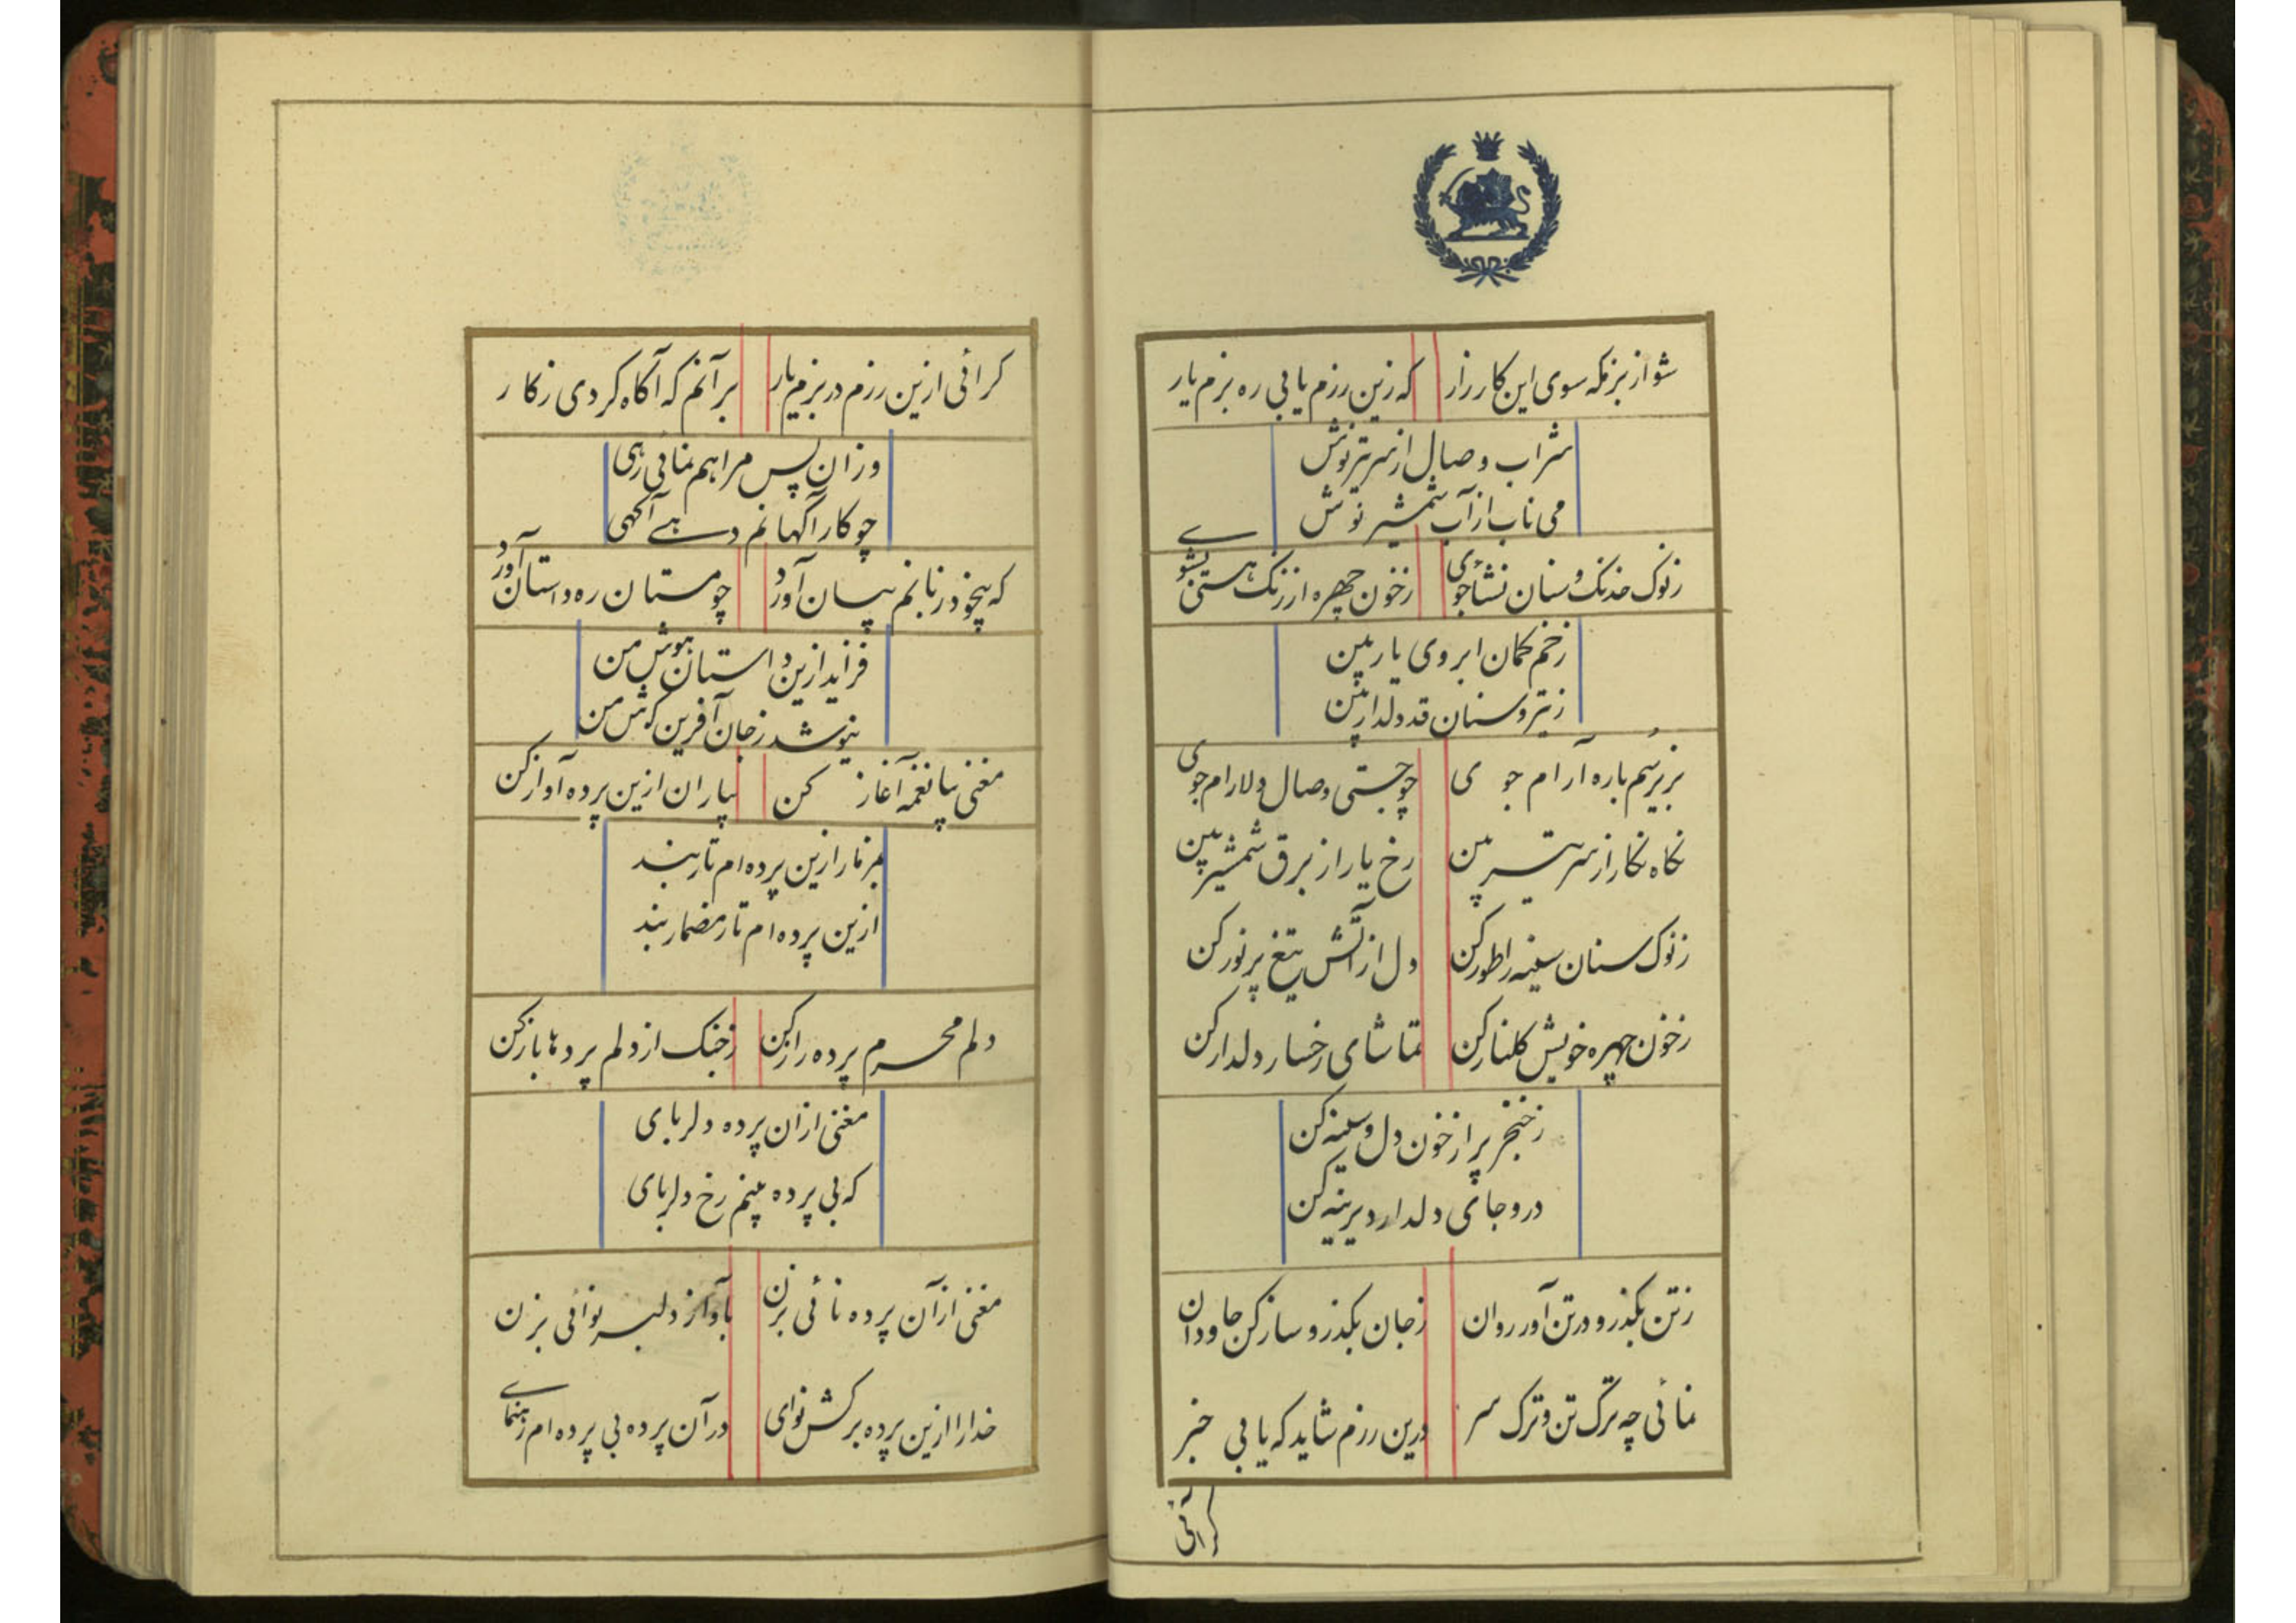 شو از بزمگه سوی این کارزار که زین رزم یابی ره بزم یار
شراب وصال از سر تیر نوش
می ناب از آب شمشیر نوش
زنوک خدنک و سنان نشأ جوی زخون چهره از زنک هستی بشوے
زخم کمان ابروی یار بین
زتیر و سنان قد دلدار بین
بزیر سم باره آرام جوی چو جستی وصال دلارام جوی
نکاه نکار از سر تیر بین رخ یار از برق شمشیر بین
زنوک سنان سینه را طور کن دل از آتش تیغ پر نور کن
زخون چهره خویش کلنار کن تماشای رخسار دلدار کن
زخنجر پر از خون دل و سینه کن
درو جای دلدار دیرینه کن
زتن بکذر و در تن آور روان زجان بکذر و ساز کن جاودان
نمائی چه ترک تن و ترک سر درین رزم شاید که یابی خبر
کرائی
کرائی ازین رزم در بزم یار بر آنم که آکاه کردی زکار
وزان پس مرا هم نمائی رهی
چو کار آکهانم دهے آکهی
که بیخود زبانم ببیان آورد چو مستان ره داستان آورد
فزاید ازین داستان هوش من
نیوشد زجان آفرین کوش من
مغنی بیا نغمه آغاز کن بیاران ازین پرده آواز کن
بمزمار ازین پرده ام تار بند
ازین پرده ام تار مضمار بند
دلم محرم پرده راز کن زچنک از دلم پردها باز کن
مغنی ازان پرده دلربای
که بی پرده بینم رخ دلربای
مغنی از آن پرده نائی بزن بآواز دلبر نوائی بزن
خدارا ازین پرده برکش نوای در آن پرده بی پرده ام رهنماے